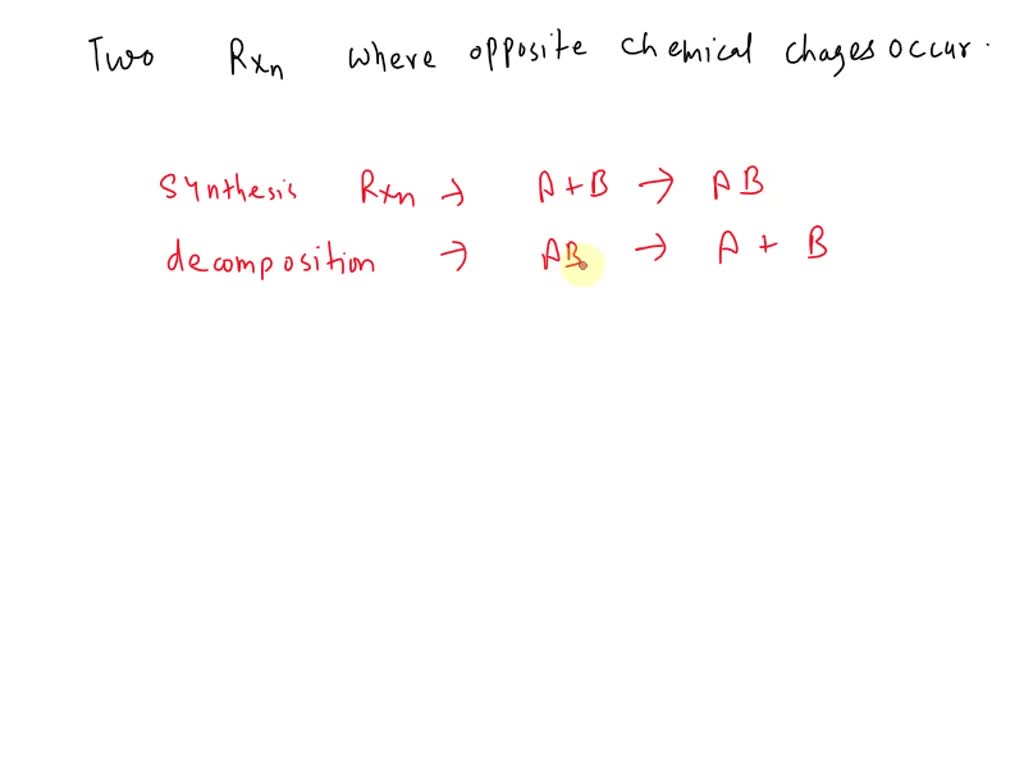 Two Rxn where opposite chemical chages occur.
Synthesis Rxn → A + B → AB
decomposition → AB → A + B